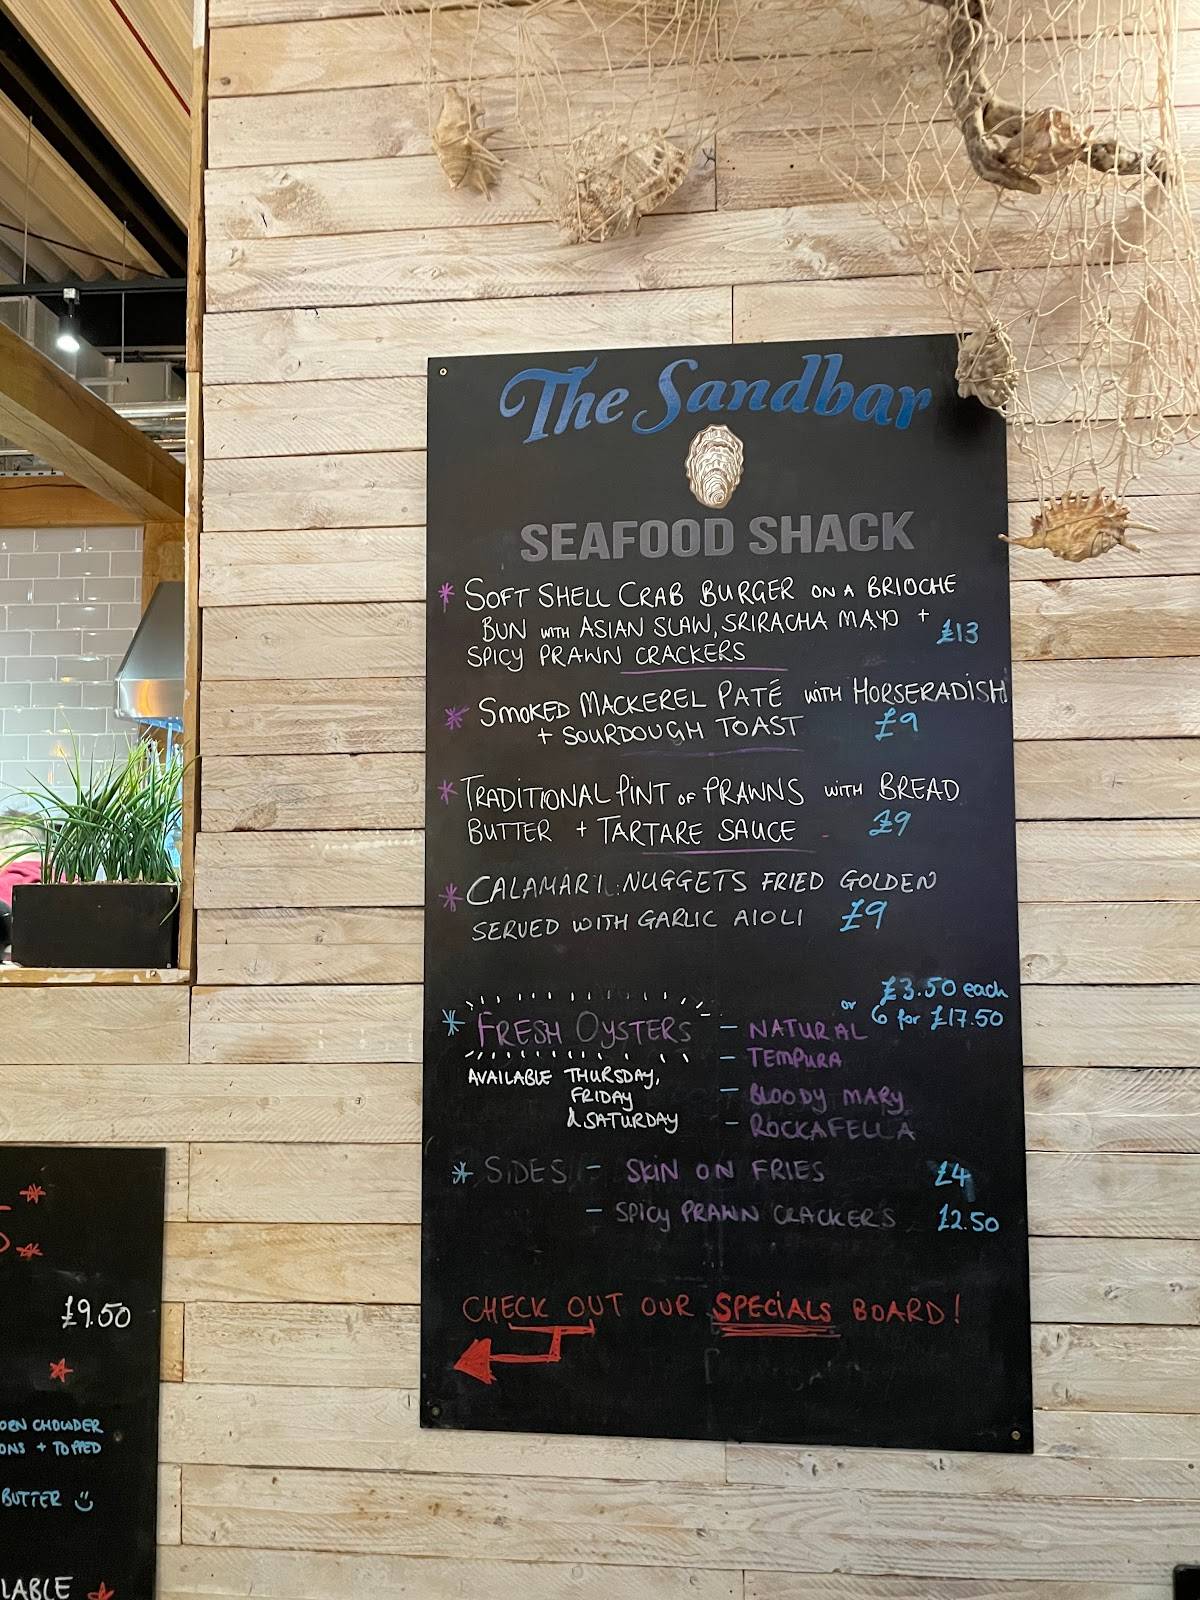 The Sandbar
SEAFOOD SHACK
* SOFT SHELL CRAB BURGER ON A BRIOCHE
BUN WITH ASIAN SLAW, SRIRACHA MAYO +
£13
SPICY PRAWN CRACKERS
* SMOKED MACKEREL PATÉ WITH HORSERADISH
+ SOURDOUGH TOAST £9
* TRADITIONAL PINT OF PRAWNS WITH BREAD
BUTTER + TARTARE SAUCE £9
* CALAMARI NUGGETS FRIED GOLDEN
SERVED WITH GARLIC AIOLI £9
£3.50 each
or 6 for £17.50
* FRESH OYSTERS - NATURAL
- TEMPURA
AVAILABLE THURSDAY,
FRIDAY
& SATURDAY
- BLOODY MARY
- ROCKAFELLA
* SIDES - SKIN ON FRIES £4
- SPICY PRAWN CRACKERS £2.50
CHECK OUT OUR SPECIALS BOARD!
£9.50
CHOWDER
+ TOPPED
BUTTER